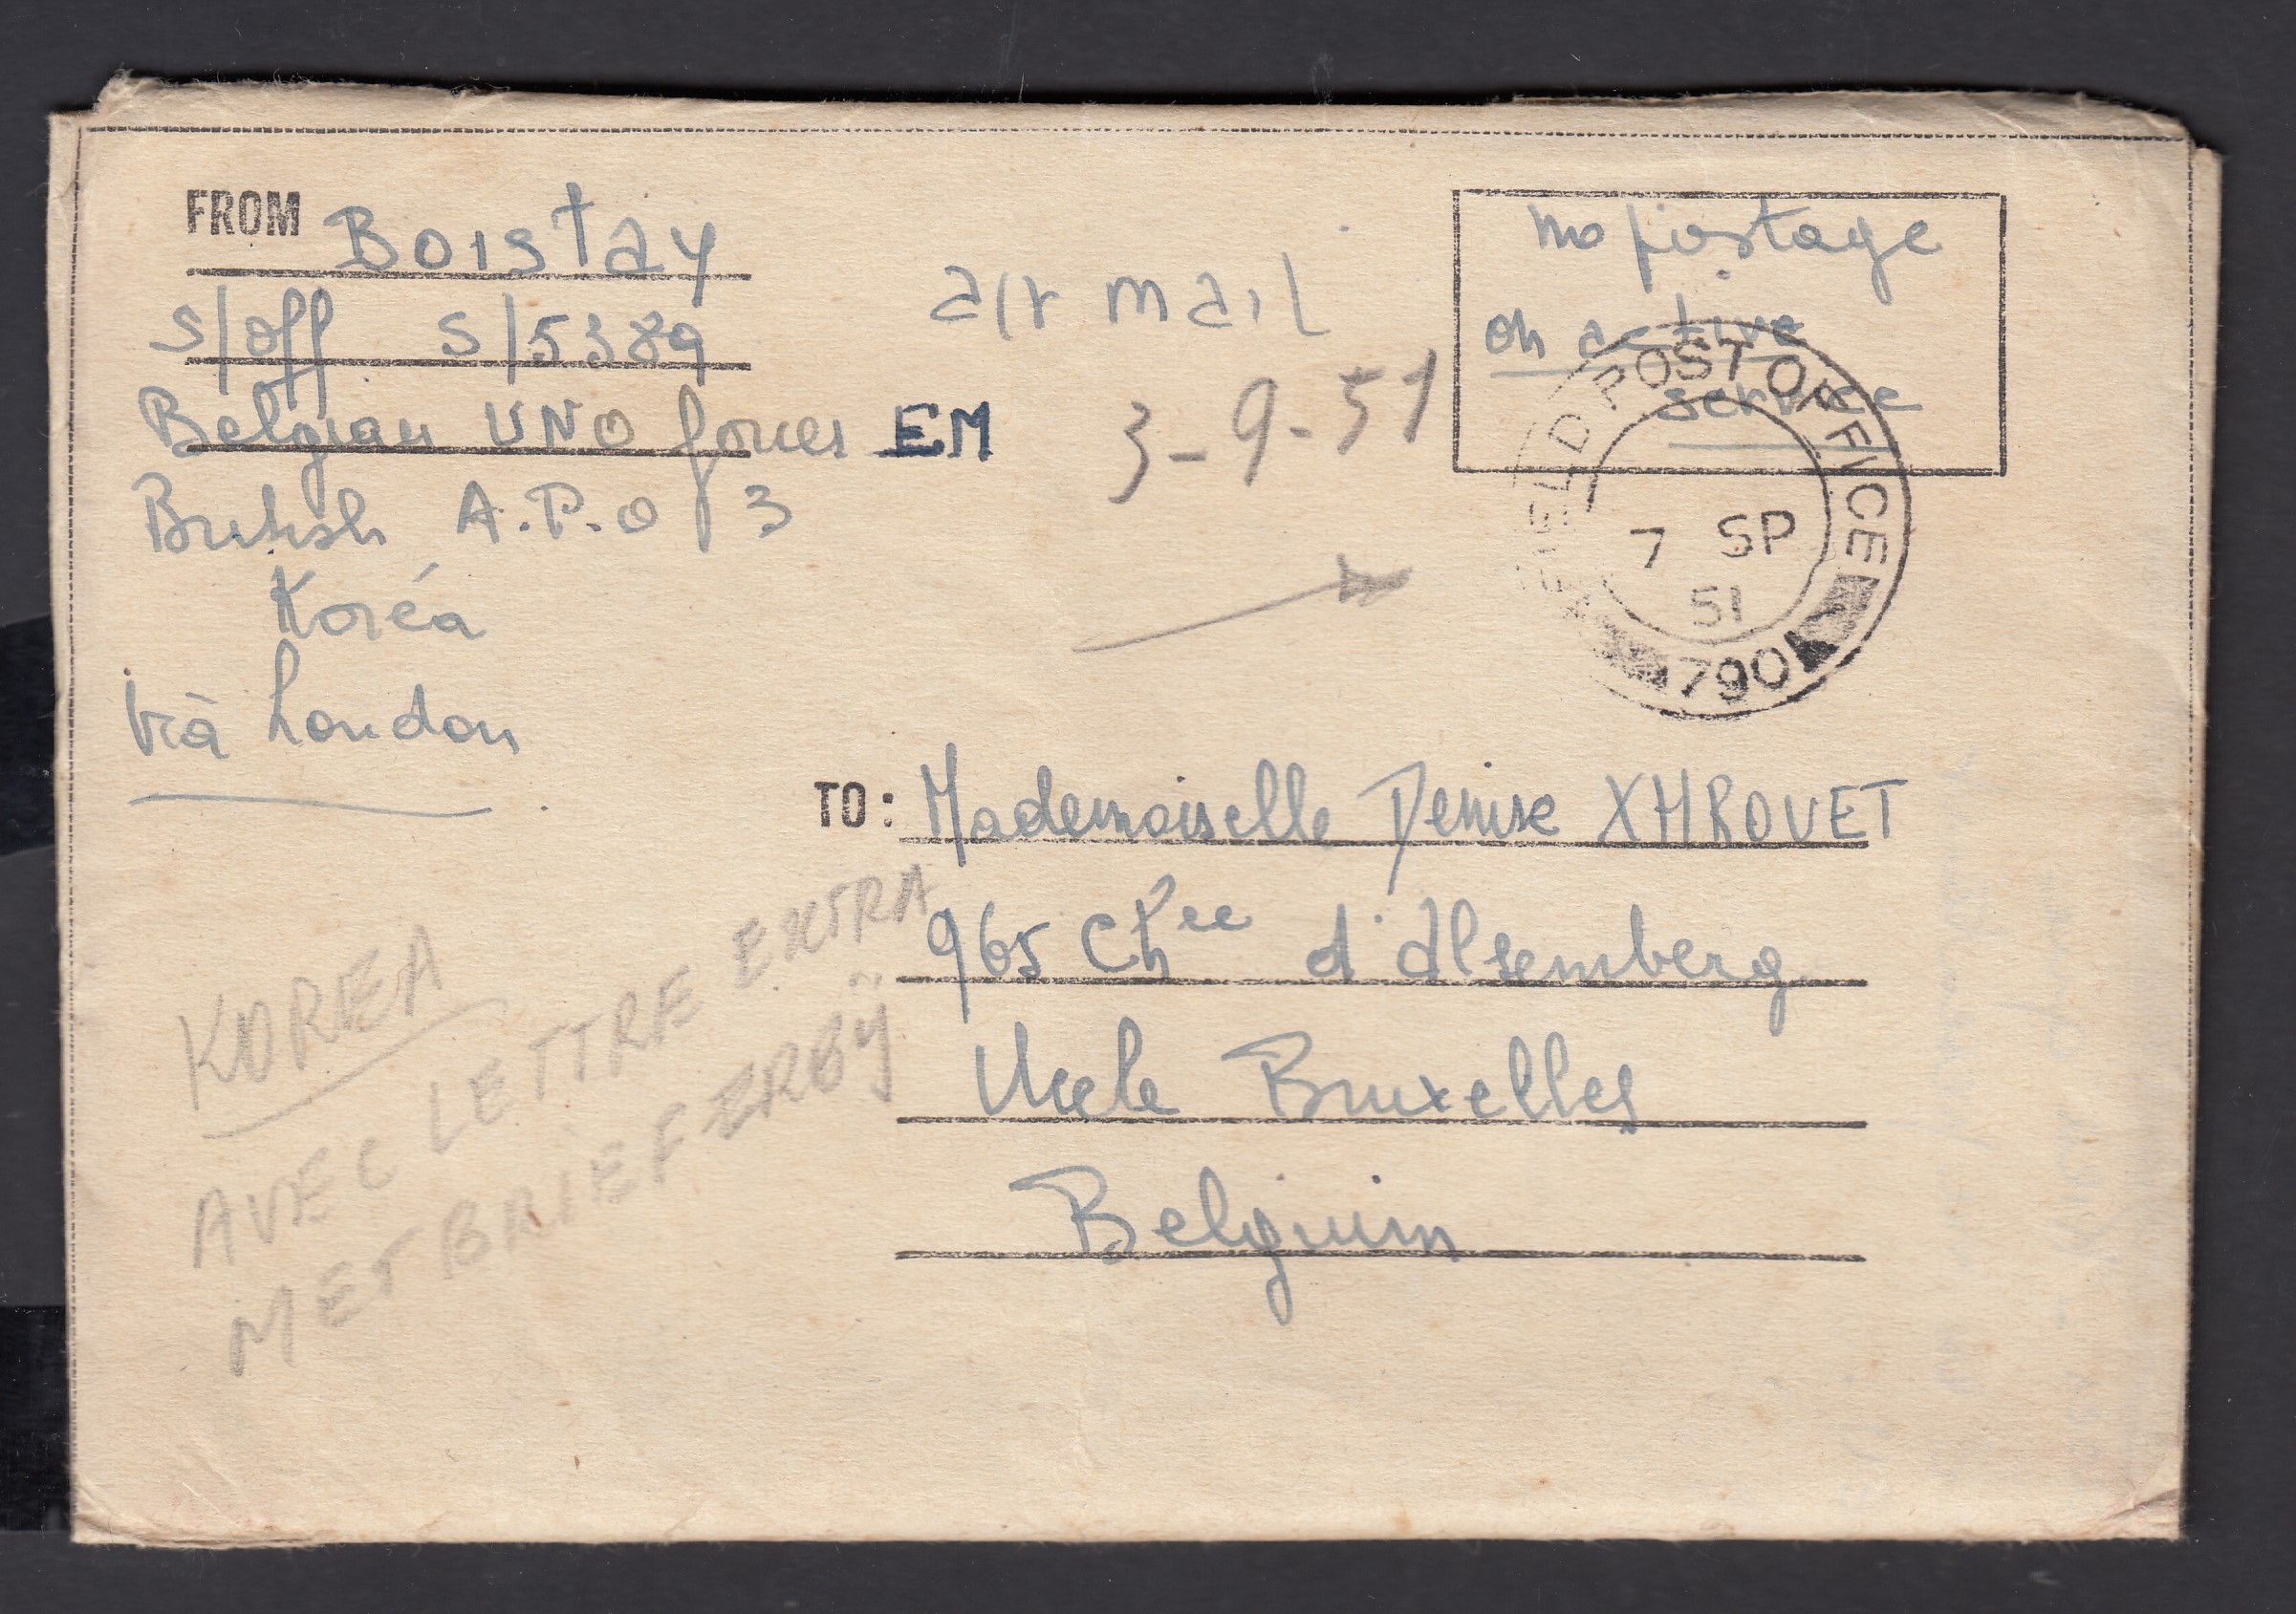 FROM Boistay
S/off S/5389
Belgian UNO forces EM
British A.P.O 3
Koréa
Vià London
air mail
3-9-51
no postage
on active
service
FIELD POST OFFICE
7 SP
51
790
TO: Mademoiselle Denise XHROUET
965 Chee d'Alsemberg
Uccle Bruxelles
Belgium
KOREA
AVEC LETTRE EXTRA
MET BRIEF ERBŸ